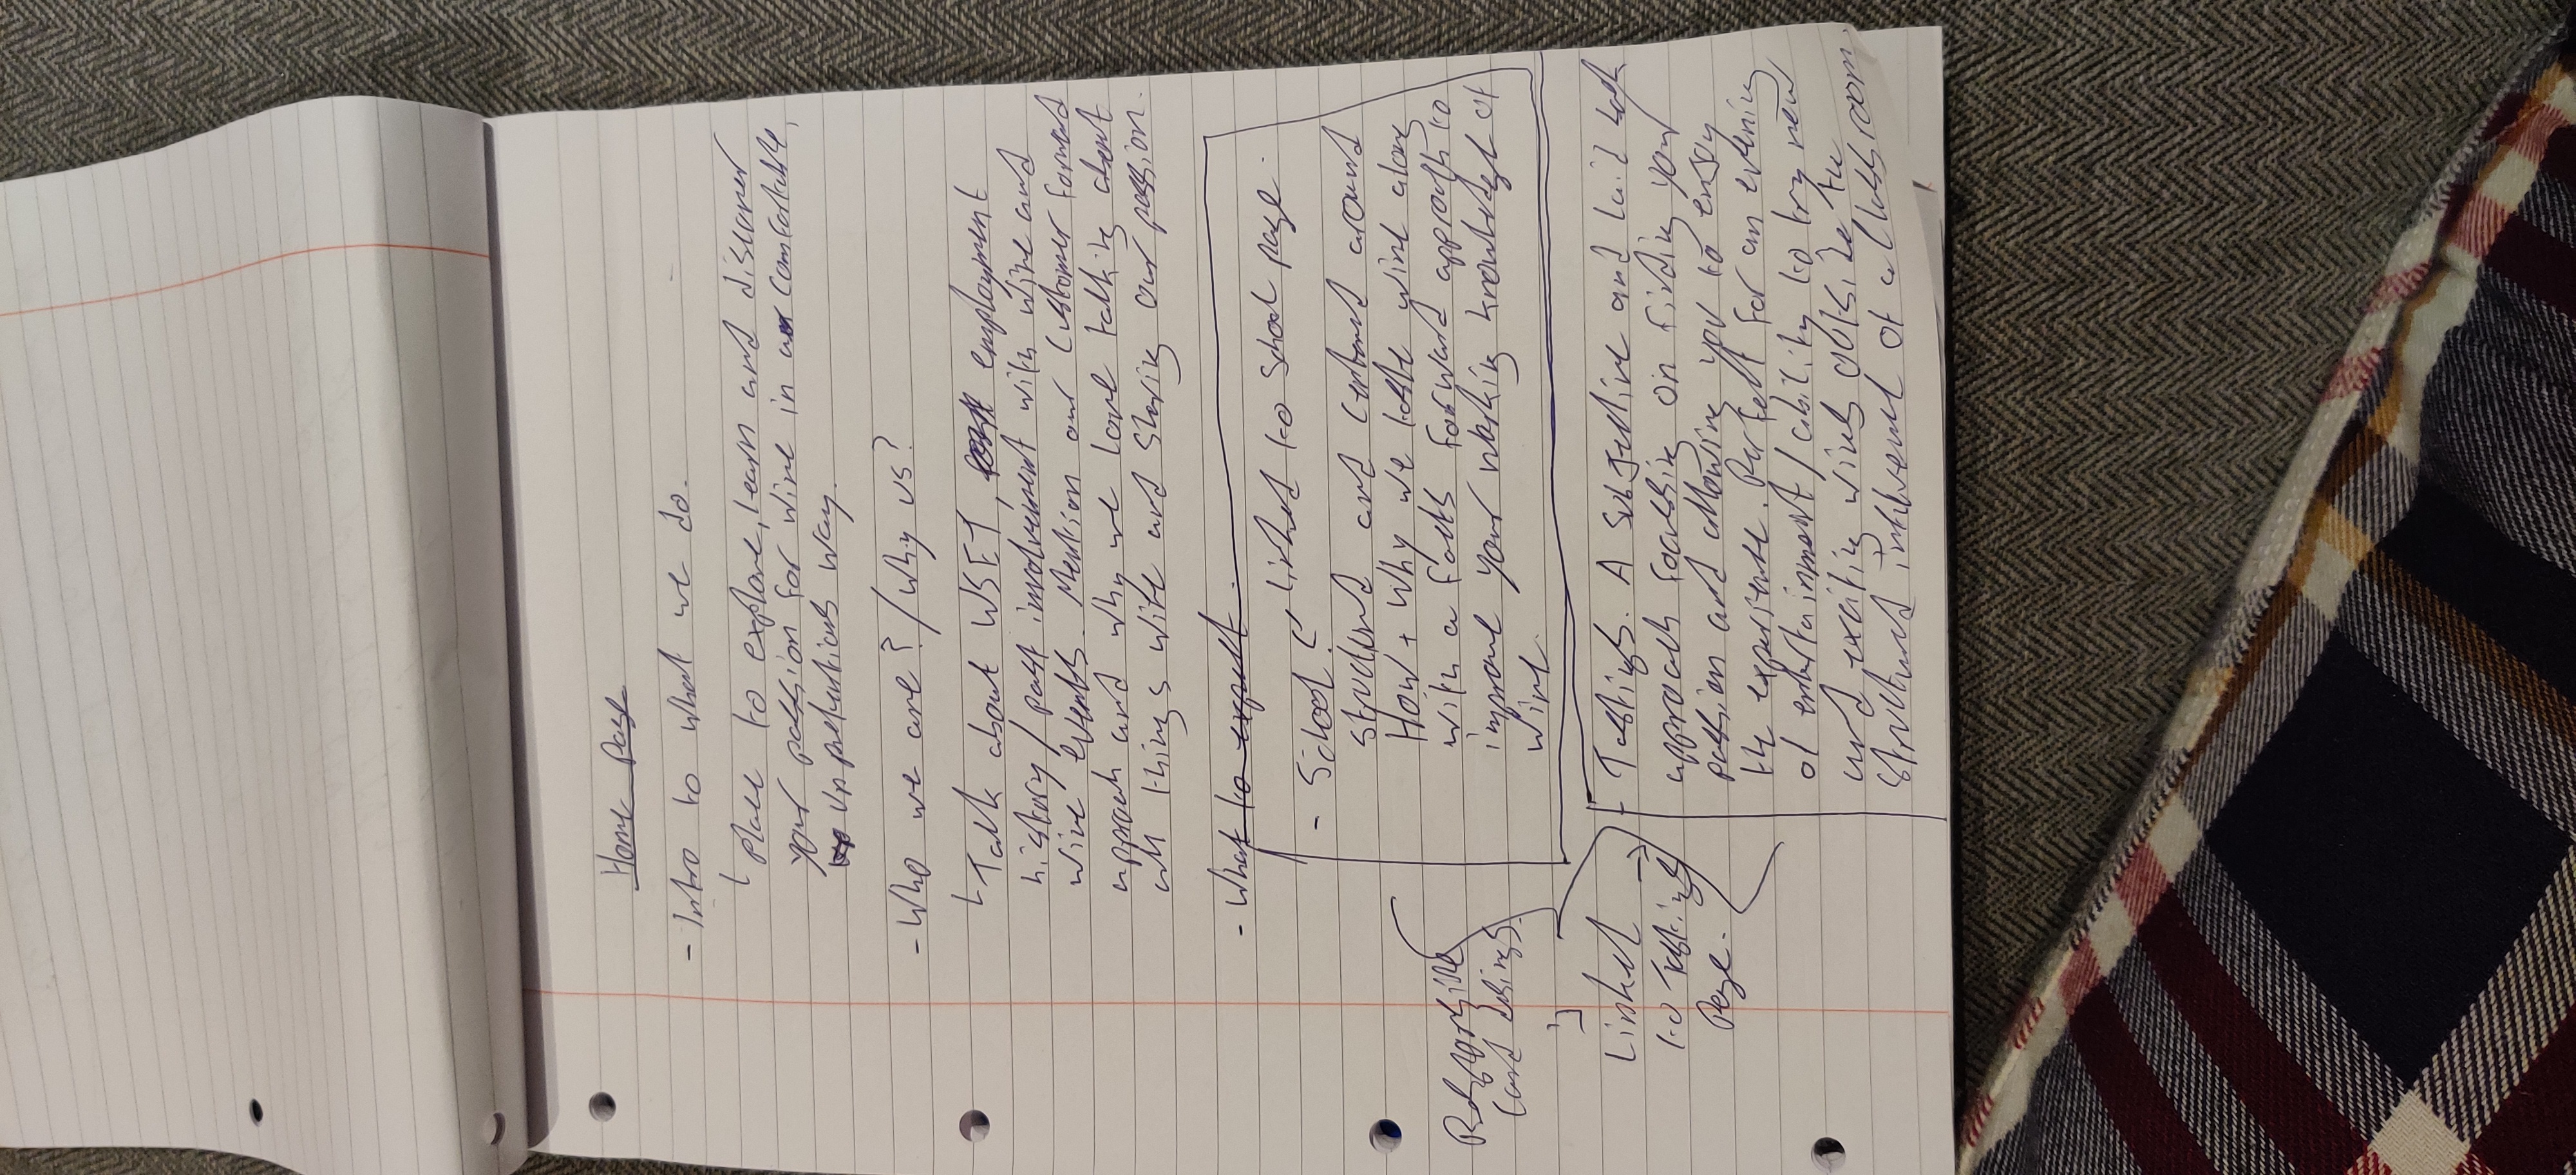 Home Page
- Intro to what we do.
Place to explore, learn and discover
your passion for wine in a comfortable,
unpretentious way.
- Who we are? / Why us?
Talk about WSET, employment
history / past involvement with wine and
wine events. Mention our customer forward
approach and why we love talking about
all things wine and sharing our passion.
- What to expect.
- School linked to School page.
structured and centered around
How + Why we taste wine along
with a facts forward approach to
improve your working knowledge of
wine.
Responsive
card
Linked
to Tastings
Page.
- Tastings. A subjective and laid back
approach focussing on finding your
passion and allowing you to enjoy
the experience. Perfect for an evening
of entertainment / ability to try new
and exciting wines outside the
structured of a classroom.